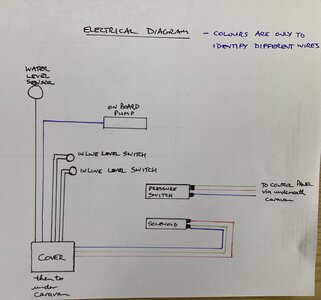 ELECTRICAL DIAGRAM
- COLOURS ARE ONLY TO
IDENTIFY DIFFERENT WIRES
WATER
LEVEL
SENSOR
ON BOARD
PUMP
INLINE LEVEL SWITCH
INLINE LEVEL SWITCH
PRESSURE
SWITCH
TO CONTROL PANEL
via underneath
caravan
SOLENOID
COVER
then to
under
caravan